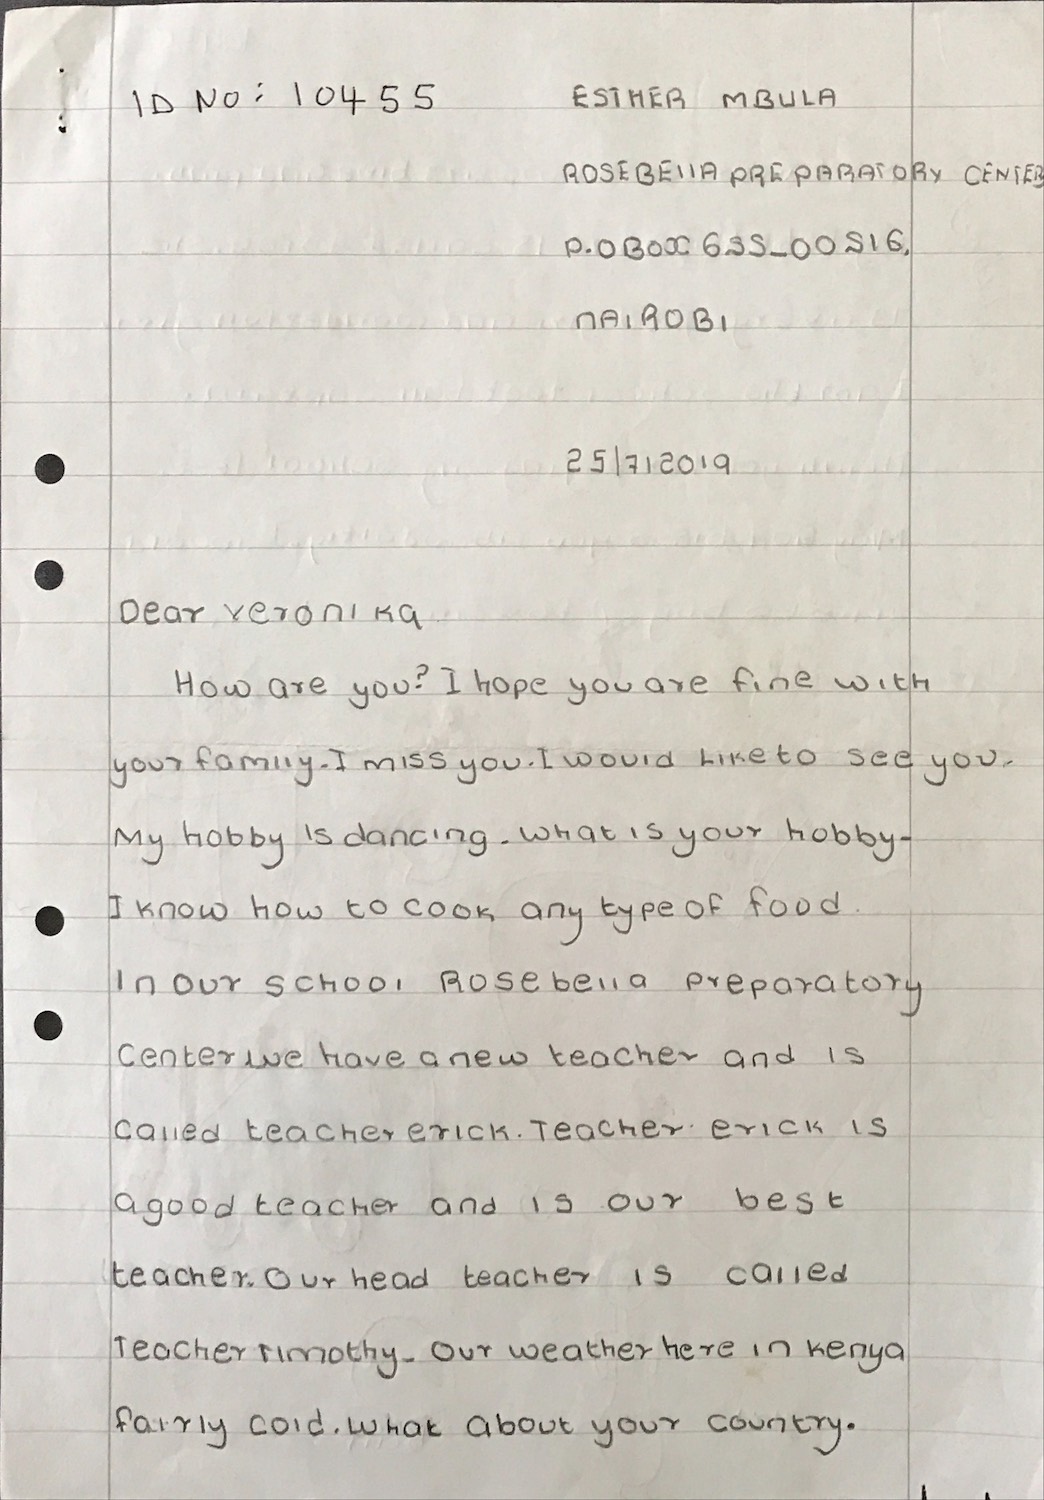 ID NO: 10455
ESTHER MBULA
ROSEBELLA PREPARATORY CENTER
P.O BOX 635_00516,
NAIROBI
25/7/2019
Dear Veronika
How are you? I hope you are fine with
your family. I miss you. I would Like to see you.
My hobby is dancing. What is your hobby.
I know how to cook any type of food.
In our school Rosebella preparatory
Center we have a new teacher and is
called teacher erick. Teacher erick is
a good teacher and is our best
teacher. Our head teacher is called
Teacher Timothy. Our weather here in kenya
fairly cold. What about your country.